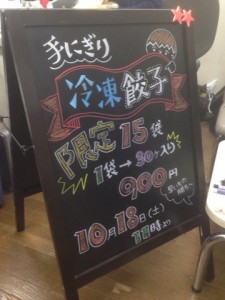 手にぎり
冷凍餃子
限定15袋
1袋→30ヶ入り
900円
10月18日(土)
11時より